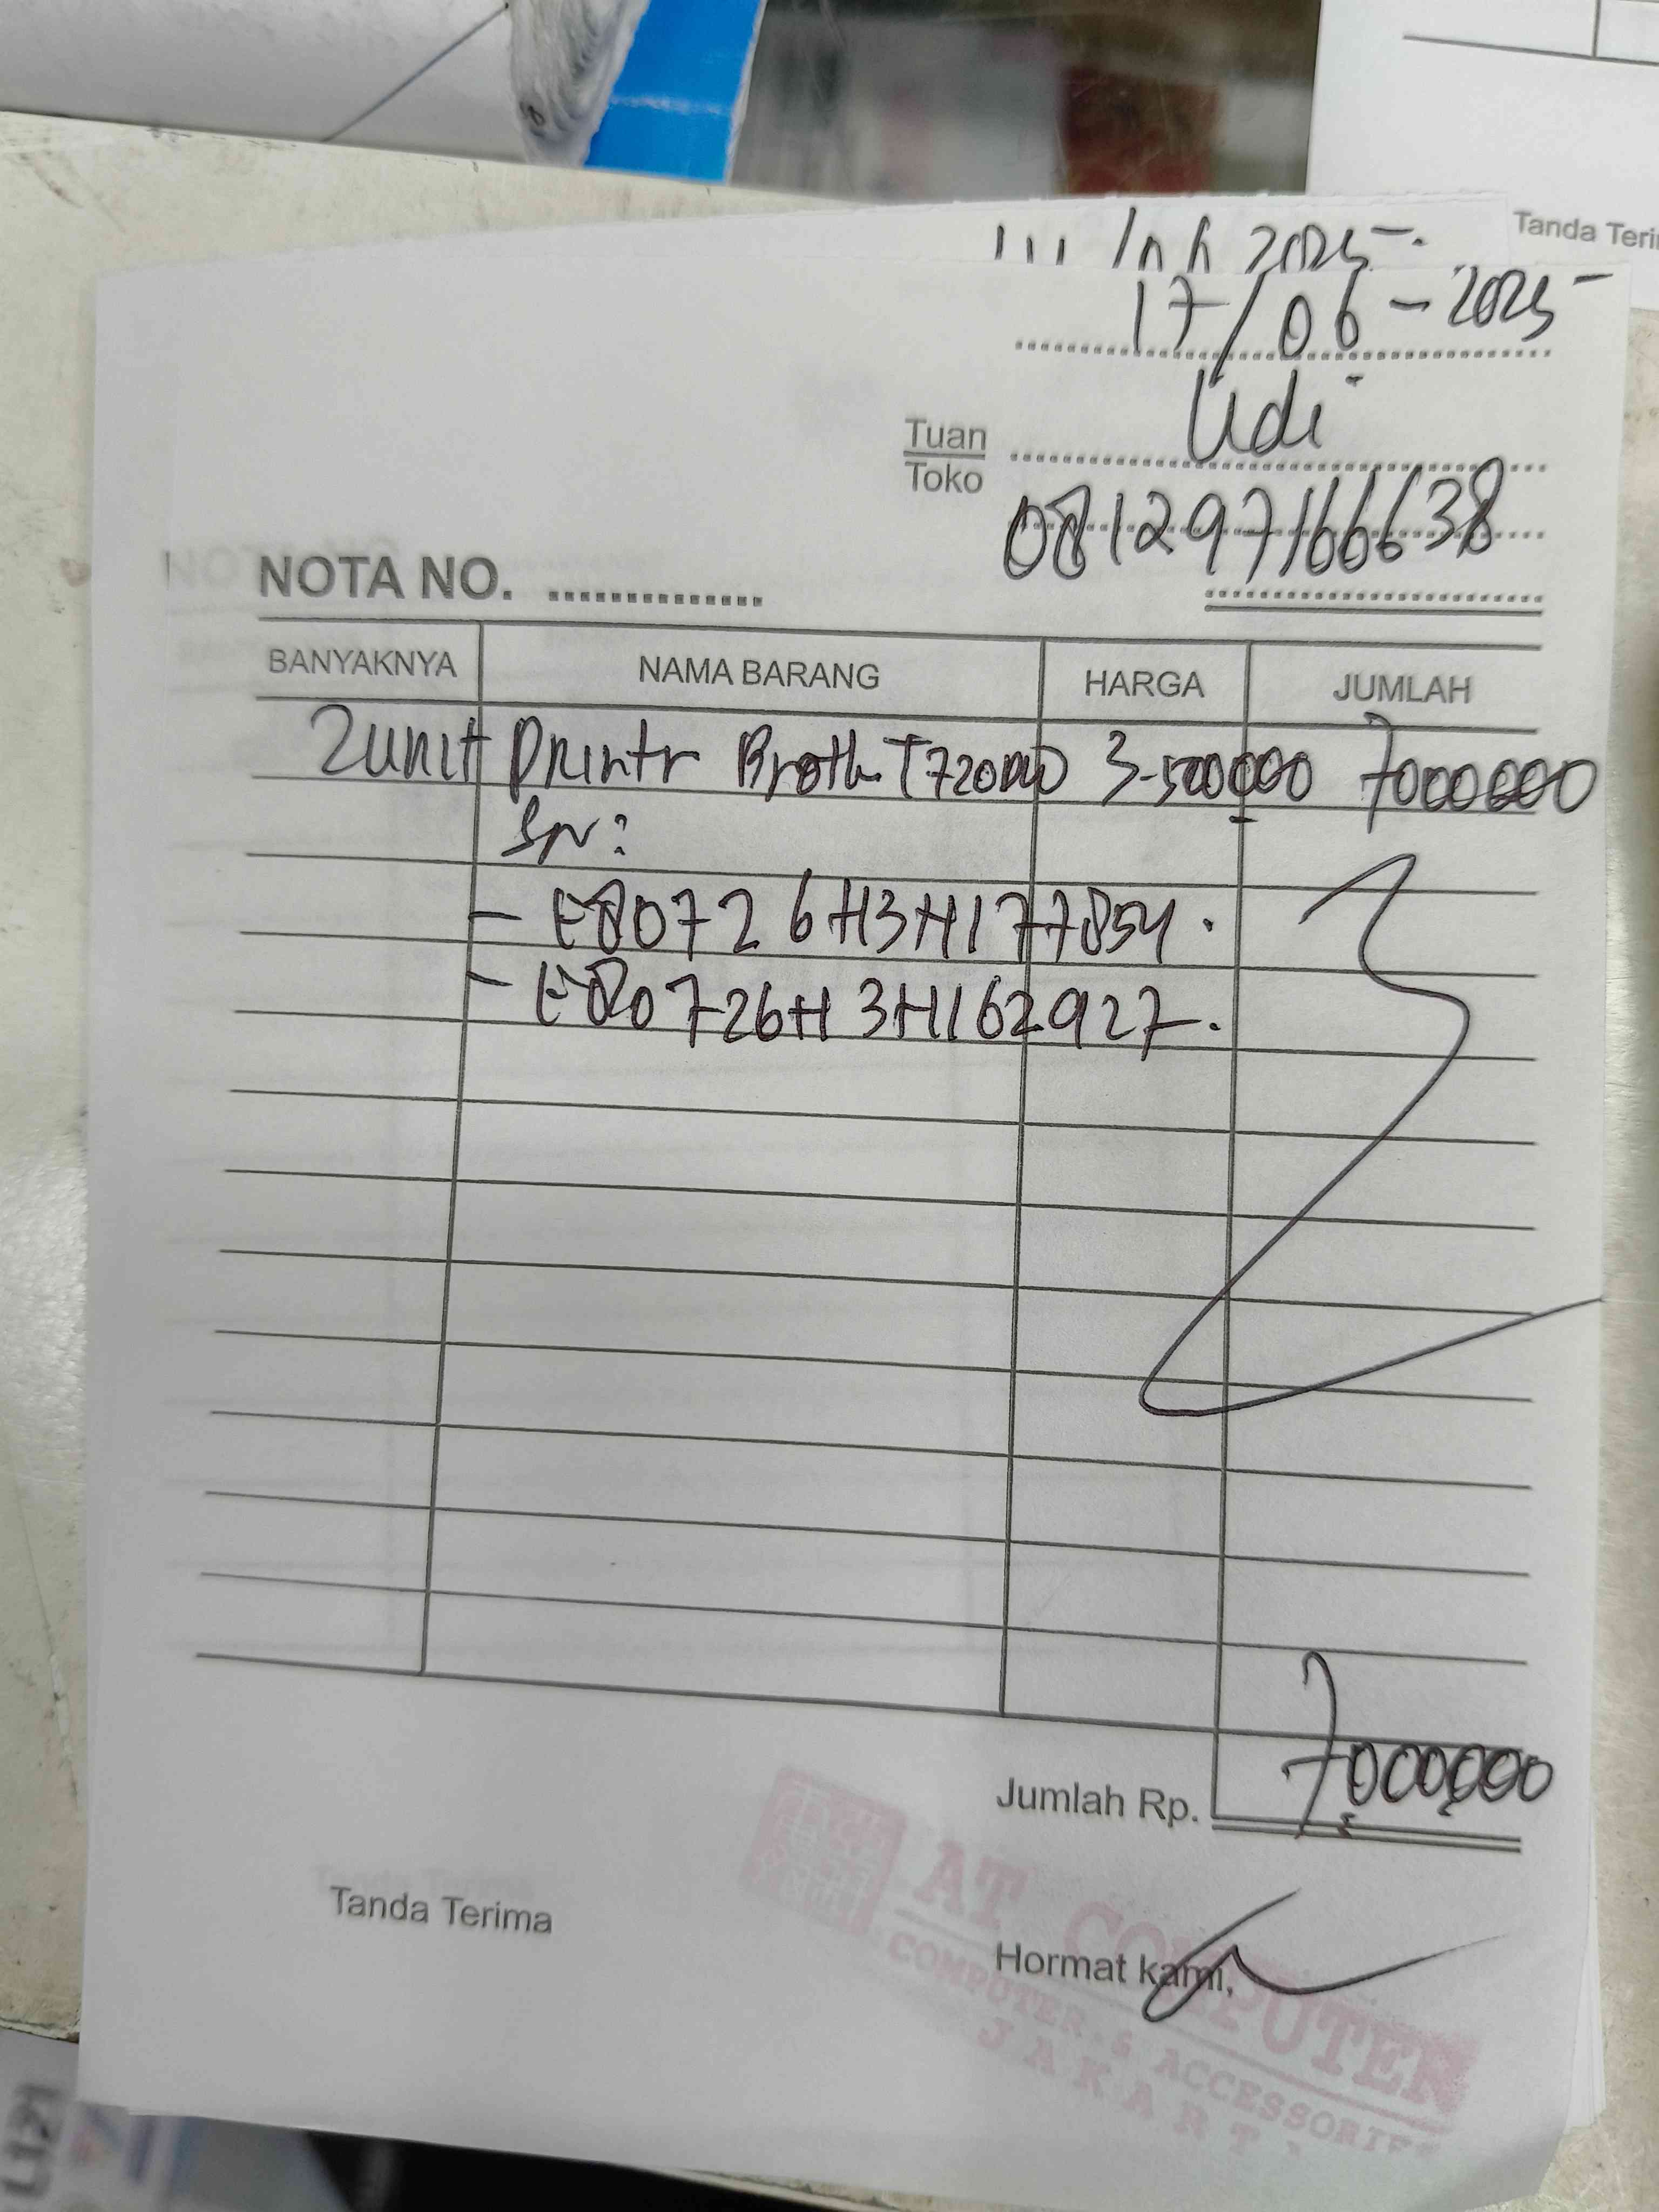 Tanda Teri
17/06-2025
Udi
Tuan
Toko
081297166638
NOTA NO.
BANYAKNYA NAMA BARANG HARGA JUMLAH
2 unit Printr Broth T720DW 3.500000 7000000
SN:
- E80726H3H177854.
- E80726H3H162927.
Jumlah Rp. 7000000
Tanda Terima
Hormat kami,
AT COMPUTER
COMPUTER & ACCESSORIES
JAKART